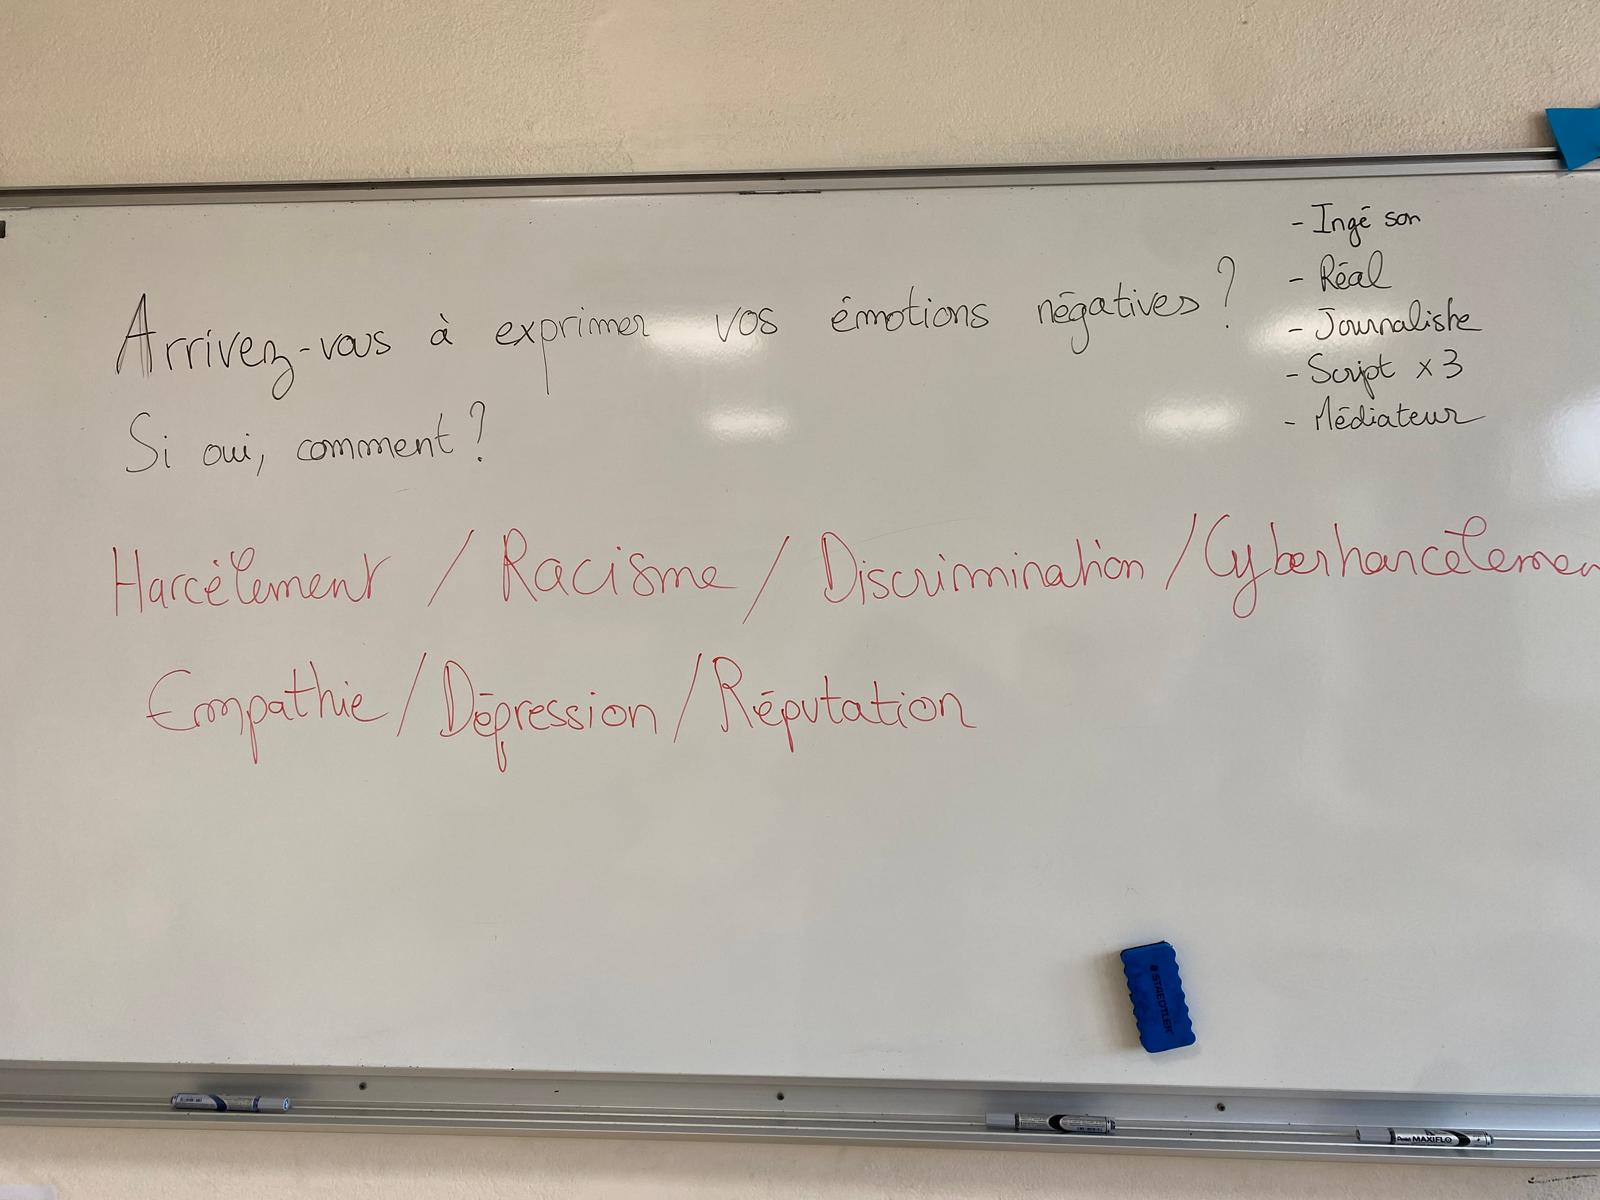 Arrivez-vous à exprimer vos émotions négatives ?
Si oui, comment ?
- Ingé son
- Réal
- Journaliste
- Script x 3
- Médiateur
Harcèlement / Racisme / Discrimination / Cyberharcèlemen
Empathie / Dépression / Réputation
STAEDTLER
Pentel MAXIFLO